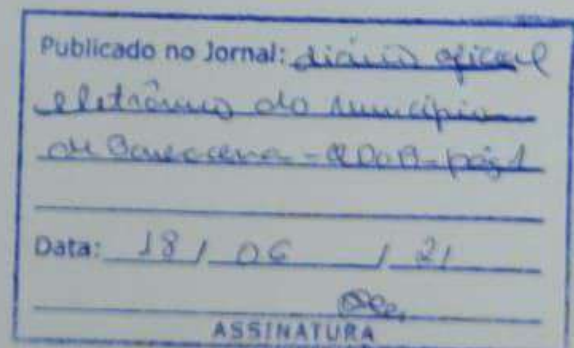 Publicado no Jornal: diário oficial
eletrônico do município
de Barbacena - eDOB - pág 1
Data: 18 / 06 / 21
ASSINATURA